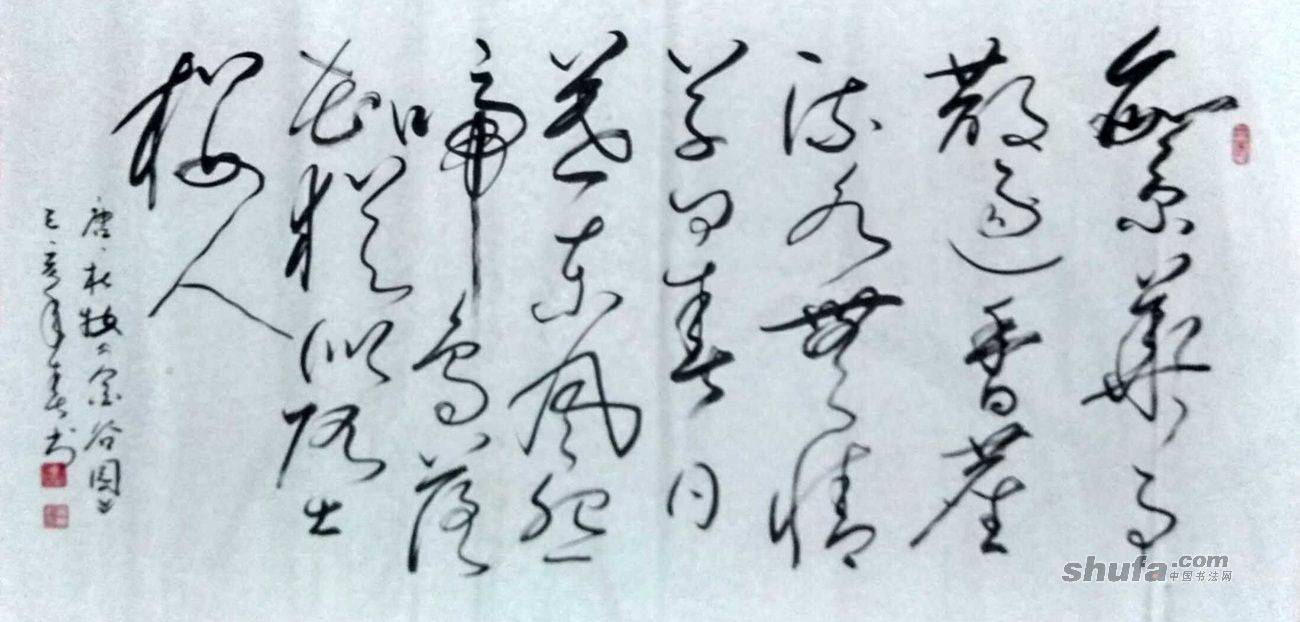 繁華事
散逐香塵
流水無情
草自春日
暮東風怨
啼鳥落
花犹似墜
楼人
唐·杜牧《金谷园》
己亥年春书
shufa.com
中国书法网